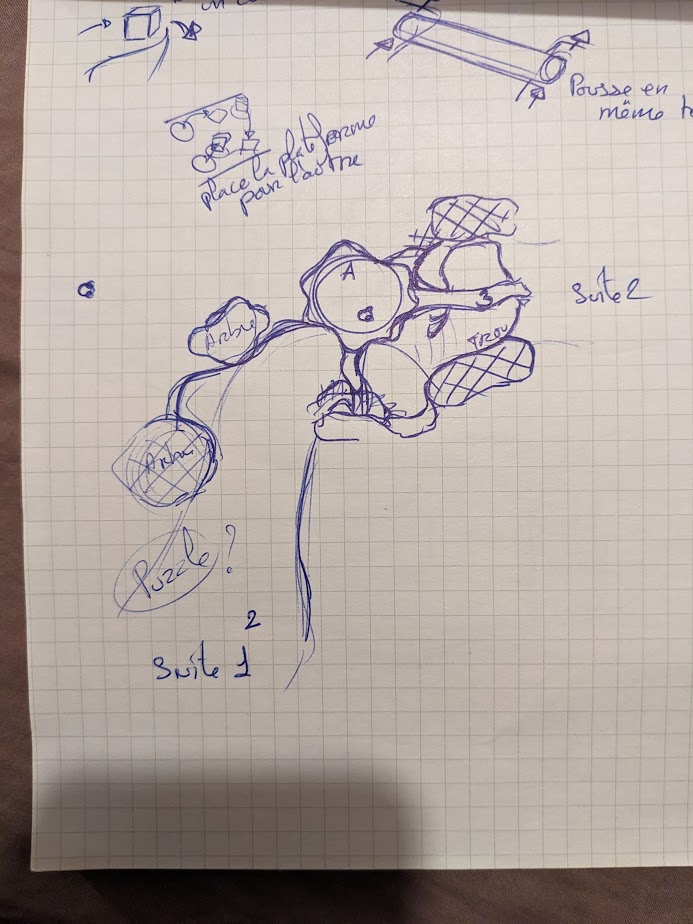 Pousse en
même
place la plateforme
pour l'autre
A
Suite 2
3
Arbre
Trou
Arbre
Puzzle ?
2
Suite 1